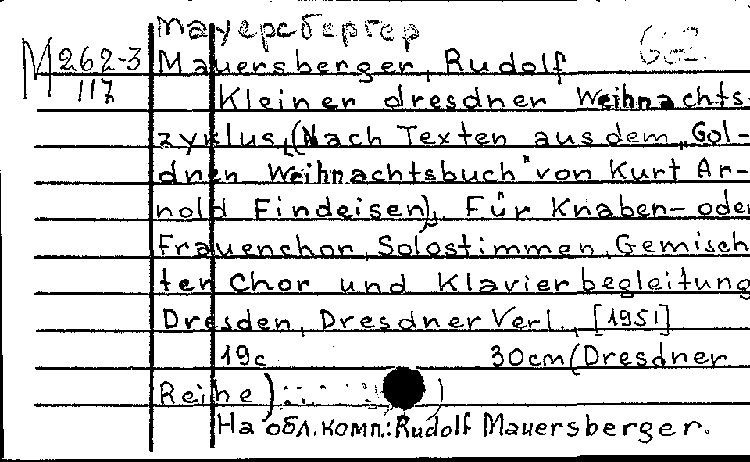 Мауерсбергер
М 262-3 Mauersberger, Rudolf
117 Kleiner dresdner Weihnachts-
zyklus, (Nach Texten aus dem „Gol-
dnen Weihnachtsbuch" von Kurt Ar-
nold Findeisen), Für Knaben- oder
Frauenchor, Solostimmen, Gemisch
ten Chor und Klavierbegleitung
Dresden, Dresdner Verl., [1951]
19c 30cm (Dresdner
Reihe)
На обл. комп.: Rudolf Mauersberger.